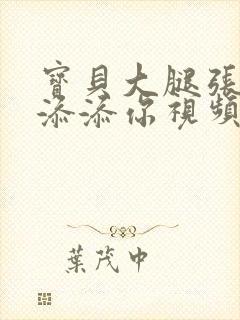 寶貝大腿張
添添你視頻
葉茂中